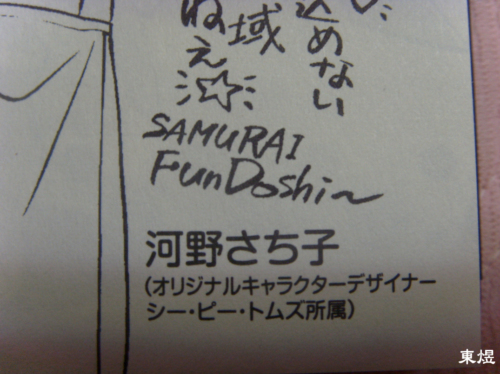 込めない
域
ねえ☆
SAMURAI
FunDoshi~
河野さち子
(オリジナルキャラクターデザイナー
シー・ピー・トムズ所属)
東煜